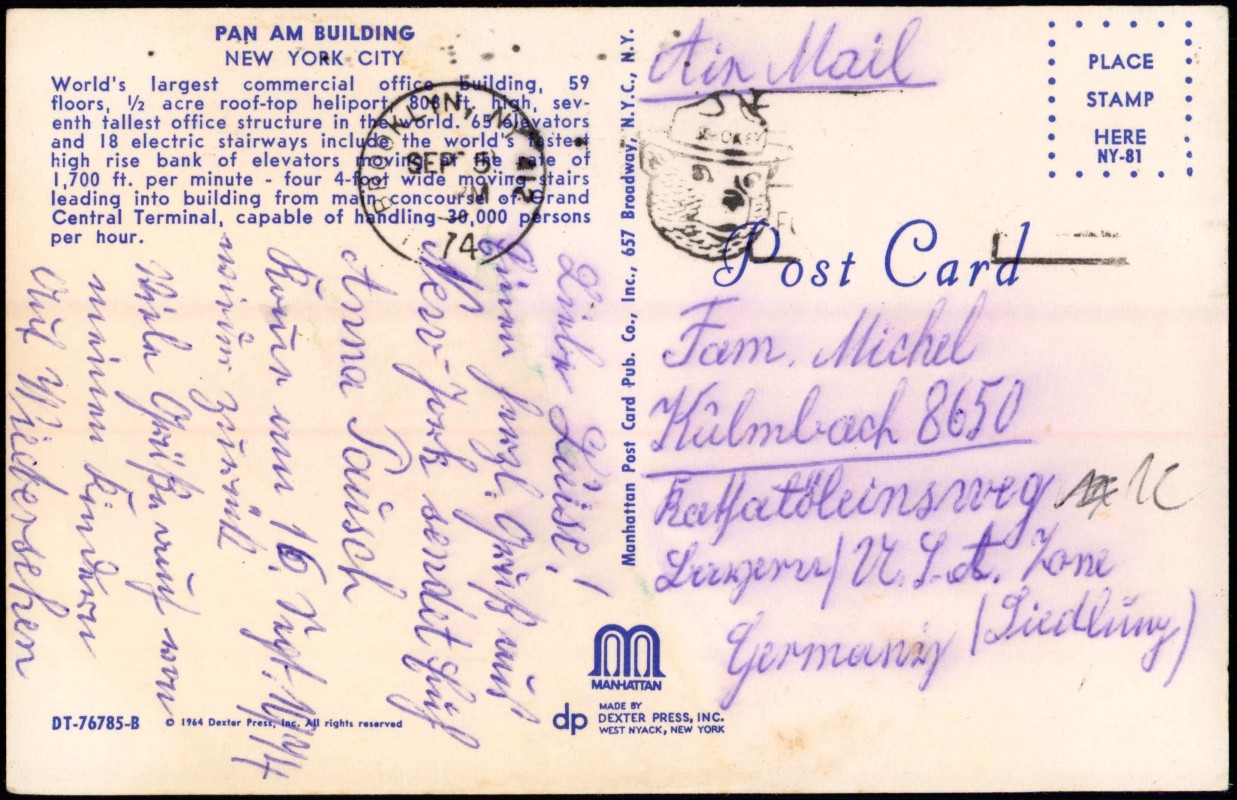 PAN AM BUILDING
NEW YORK CITY
World's largest commercial office building, 59
floors, ½ acre roof-top heliport, 808 ft. high, sev-
enth tallest office structure in the world. 65 elevators
and 18 electric stairways include the world's fastest
high rise bank of elevators moving at the rate of
1,700 ft. per minute - four 4-foot wide moving stairs
leading into building from main concourse of Grand
Central Terminal, capable of handling 30,000 persons
per hour.
BROOKLYN, NY 112
SEP 5
PM
74
Liebe Luise!
Einen herzl. Gruß aus
New-York sendet Euch
Anna Tausch
Komme am 16. Sept. 1974
wieder zurück
Viele Grüße auch von
meinen Kindern
Auf Wiedersehen
DT-76785-B
© 1964 Dexter Press, Inc. All rights reserved
Manhattan Post Card Pub. Co., Inc., 657 Broadway, N.Y.C., N.Y.
MANHATTAN
dp
MADE BY
DEXTER PRESS, INC.
WEST NYACK, NEW YORK
Air Mail
PLACE
STAMP
HERE
NY-81
Post Card
Fam. Michel
Kulmbach 8650
Bayern/U.S.A. Zone
Germany (Siedlung)